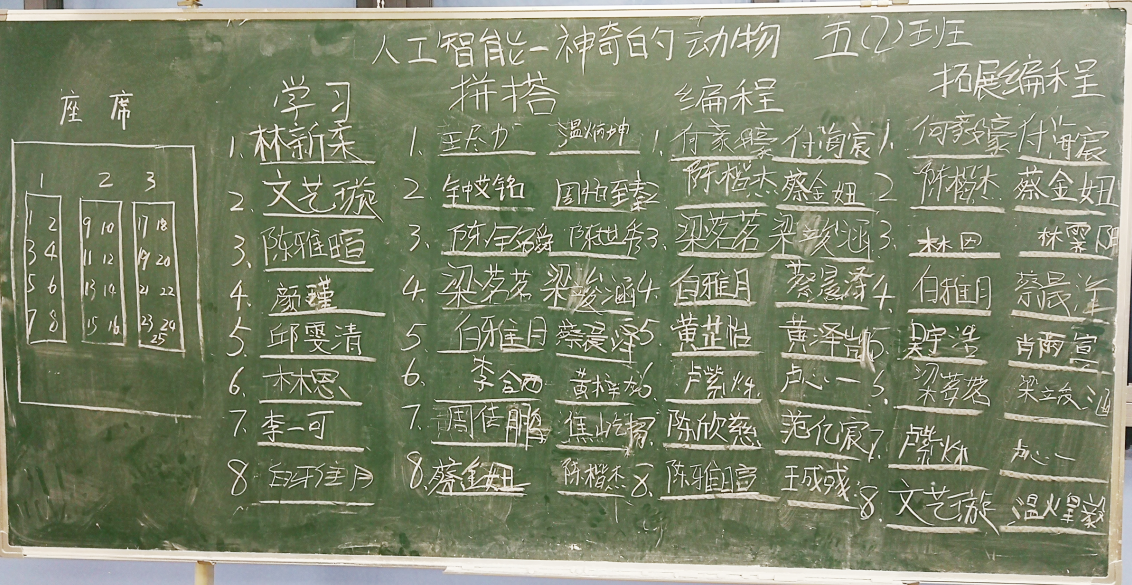 人工智能—神奇的动物 五(2)班
座席
1 2 3
1 2 9 10 17 18
3 4 11 12 19 20
5 6 13 14 21 22
7 8 15 16 23 24
25
学习
1. 林新栾
2. 文艺璇
3. 陈雅暄
4. 颜瑾
5. 邱雯清
6. 林恩
7. 李一可
8. 白雅月
拼搭
1. 温炳坤
2. 钟艾铭
3.
4. 梁茗茗 梁峻涵
5. 白雅月 蔡晨泽
6. 李
7. 周倩鹏
8. 蔡金妞 陈楷杰
编程
1. 何家豪 付海宸
2. 陈楷杰 蔡金妞
3. 梁茗茗 梁峻涵
4. 白雅月 蔡晨泽
5. 黄芷怡 黄泽凯
6. 卢紫烁 卢心一
7. 陈欣慈 范亿宸
8. 陈雅暄 王成彧
拓展编程
1. 何家豪 付海宸
2. 陈楷杰 蔡金妞
3. 林恩
4. 白雅月 蔡晨泽
5. 吴宇浩 肖雨宣
6. 梁茗茗 梁峻涵
7. 卢紫烁 卢心一
8. 文艺璇